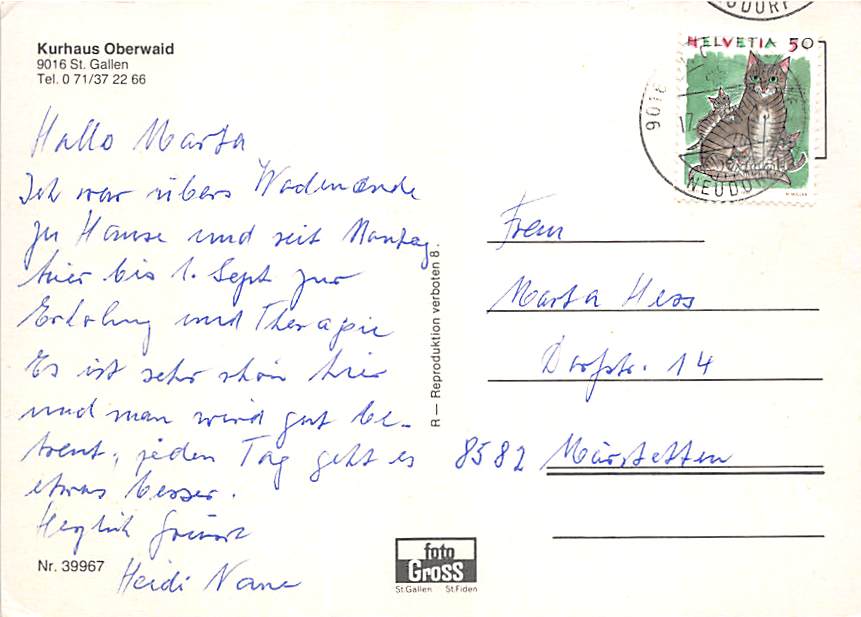 Kurhaus Oberwaid
9016 St. Gallen
Tel. 0 71/37 22 66
Hallo Marta
Ich war übers Wochenende
zu Hause und seit Montag
hier bis 1. Sept zur
Erholung und Therapie
Es ist sehr schön hier
und man wird gut be-
treut, jeden Tag geht es
etwas besser.
Herzlich grüsst
Heidi
Nr. 39967
R — Reproduktion verboten 8.
foto
Gross
St.Gallen St.Fiden
HELVETIA 50
9016
17.
NEUDORF
NEUDORF
Frau
Marta Hess
Dorfstr. 14
8582 Märstetten